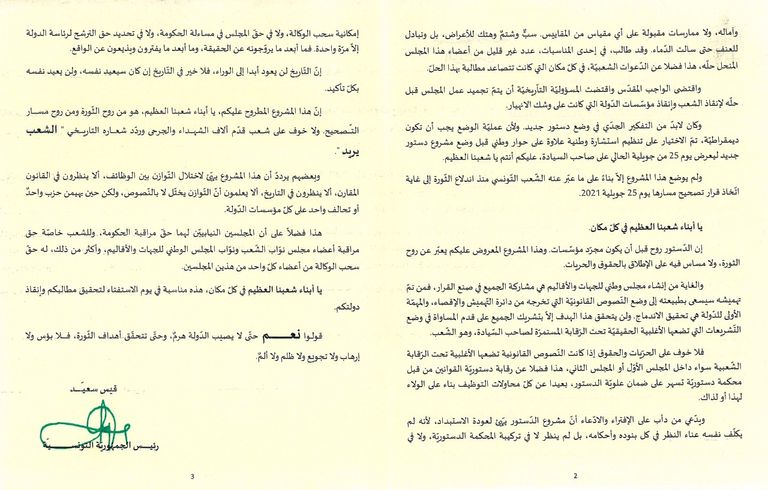 وآماله، ولا ممارسات مقبولة على أي مقياس من المقاييس. سبٌّ وشتمٌ وهتك للأعراض، بل وتبادل
للعنف حتى سالت الدّماء. وقد طالب، في إحدى المناسبات، عدد غير قليل من أعضاء هذا المجلس
المنحل حلّه، هذا فضلا عن الدّعوات الشعبيّة، في كلّ مكان التي كانت تتصاعد مطالبة بهذا الحلّ.
واقتضى الواجب المقدّس واقتضت المسؤوليّة التأريخيّة أن يتمّ تجميد عمل المجلس قبل
حلّه لإنقاذ الشعب وإنقاذ مؤسّسات الدّولة التي كانت على وشك الانهيار.
وكان لابدّ من التفكير الجدّي في وضع دستور جديد. ولأن عمليّة الوضع يجب أن تكون
ديمقراطيّة، تمّ الاختيار على تنظيم استشارة وطنية علاوة على حوار وطني قبل وضع مشروع دستور
جديد ليعرض يوم 25 من جويلية الحالي على صاحب السيادة، عليكم أنتم يا شعبنا العظيم.
ولم يوضع هذا المشروع إلاّ بناءً على ما عبّر عنه الشّعب التّونسي منذ اندلاع الثّورة إلى غاية
اتّخاذ قرار تصحيح مسارها يوم 25 جويلية 2021.
يا أبناء شعبنا العظيم في كلّ مكان.
إن الدّستور روح قبل أن يكون مجرّد مؤسّسات. وهذا المشروع المعروض عليكم يعبّر عن روح
الثورة، ولا مساس فيه على الإطلاق بالحقوق والحريات.
والغاية من إنشاء مجلس وطني للجهات والأقاليم هي مشاركة الجميع في صنع القرار، فمن تمّ
تهميشه سيسعى بطبيعته إلى وضع النّصوص القانونيّة التي تخرجه من دائرة التّهميش والإقصاء، والمهمّة
الأولى للدّولة هي تحقيق الاندماج. ولن يتحقق هذا الهدف إلاّ بتشريك الجميع على قدم المساواة في وضع
التّشريعات التي تضعها الأغلبية الحقيقيّة تحت الرّقابة المستمرّة لصاحب السّيادة، وهو الشّعب.
فلا خوف على الحرّيات والحقوق إذا كانت النّصوص القانونية تضعها الأغلبية تحت الرّقابة
الشّعبية سواء داخل المجلس الأوّل أو المجلس الثاني، هذا فضلا عن رقابة دستوريّة القوانين من قبل
محكمة دستوريّة تسهر على ضمان علويّة الدستور، بعيدا عن كلّ محاولات التوظيف بناء على الولاء
لهذا أو لذاك.
ويدّعي من دأب على الإفتراء والادعاء أنّ مشروع الدّستور يهيّئ لعودة الاستبداد، لأنه لم
يكلّف نفسه عناء النظر في كلّ بنوده وأحكامه، بل لم ينظر لا في تركيبة المحكمة الدستوريّة، ولا في
2
إمكانية سحب الوكالة، ولا في حقّ المجلس في مساءلة الحكومة، ولا في تحديد حق الترشح لرئاسة الدولة
إلاّ مرّة واحدة. فما أبعد ما يروّجونه عن الحقيقة، وما أبعد ما يفترون ويذيعون عن الواقع.
إنّ التّاريخ لن يعود أبدا إلى الوراء، فلا خير في التّاريخ إن كان سيعيد نفسه، ولن يعيد نفسه
بكلّ تأكيد.
إنّ هذا المشروع المطروح عليكم، يا أبناء شعبنا العظيم، هو من روح الثّورة ومن روح مسار
التّصحيح. ولا خوف على شعب قدّم آلاف الشهداء والجرحى وردّد شعاره التاريخي " الشعب
يريد ".
وبعضهم يردّد أن هذا المشروع يبيّن لاختلال التّوازن بين الوظائف، ألا ينظرون في القانون
المقارن، ألا ينظرون في التاريخ، ألا يعلمون أنّ التّوازن يختلّ لا بالنّصوص، ولكن حين يهيمن حزب واحدٌ
أو تحالف واحد على كلّ مؤسسات الدّولة.
هذا فضلا على أن المجلسين النيابيّيْن لهما حقّ مراقبة الحكومة، وللشعب خاصّة حق
مراقبة أعضاء مجلس نوّاب الشّعب ونوّاب المجلس الوطني للجهات والأقاليم، وأكثر من ذلك، له حقّ
سحب الوكالة من أعضاء كلّ واحد من هذين المجلسين.
يا أبناء شعبنا العظيم في كلّ مكان، هذه مناسبة في يوم الاستفتاء لتحقيق مطالبكم وإنقاذ
دولتكم.
قولوا نعم حتّى لا يصيب الدّولة هرمٌ، وحتّى تتحقّق أهداف الثّورة، فلا بؤس ولا
إرهاب ولا تجويع ولا ظلم ولا ألمٌ.
قيس سعيّد
رئيس الجمهوريّة التونسيّة
3